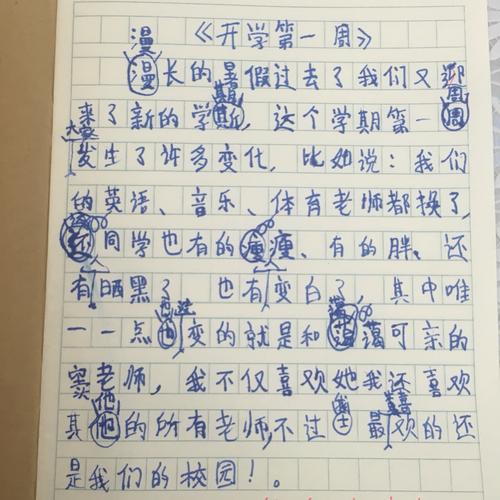 《开学第一周》
漫长的暑假过去了我们又迎
来了新的学期，这个学期第一周
大家发生了许多变化，比如说：我们
的英语、音乐、体育老师都换了，
同学也有的瘦、有的胖、还
有晒黑了 也有变白了 其中唯
一一点 变的就是和蔼可亲的
窦老师，我不仅喜欢她我还喜欢
其他的所有老师，不过 最喜欢的还
是我们的校园！。